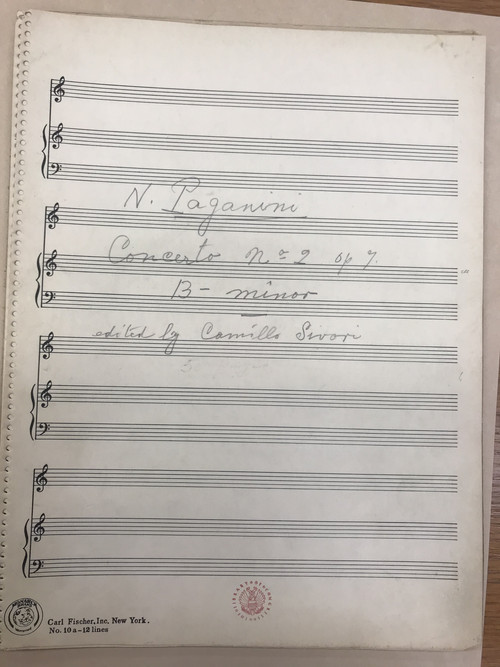 N. Paganini
Concerto No 2 op 7.
B- minor
edited by Camillo Sivori
Carl Fischer, Inc. New York.
No. 10 a - 12 lines